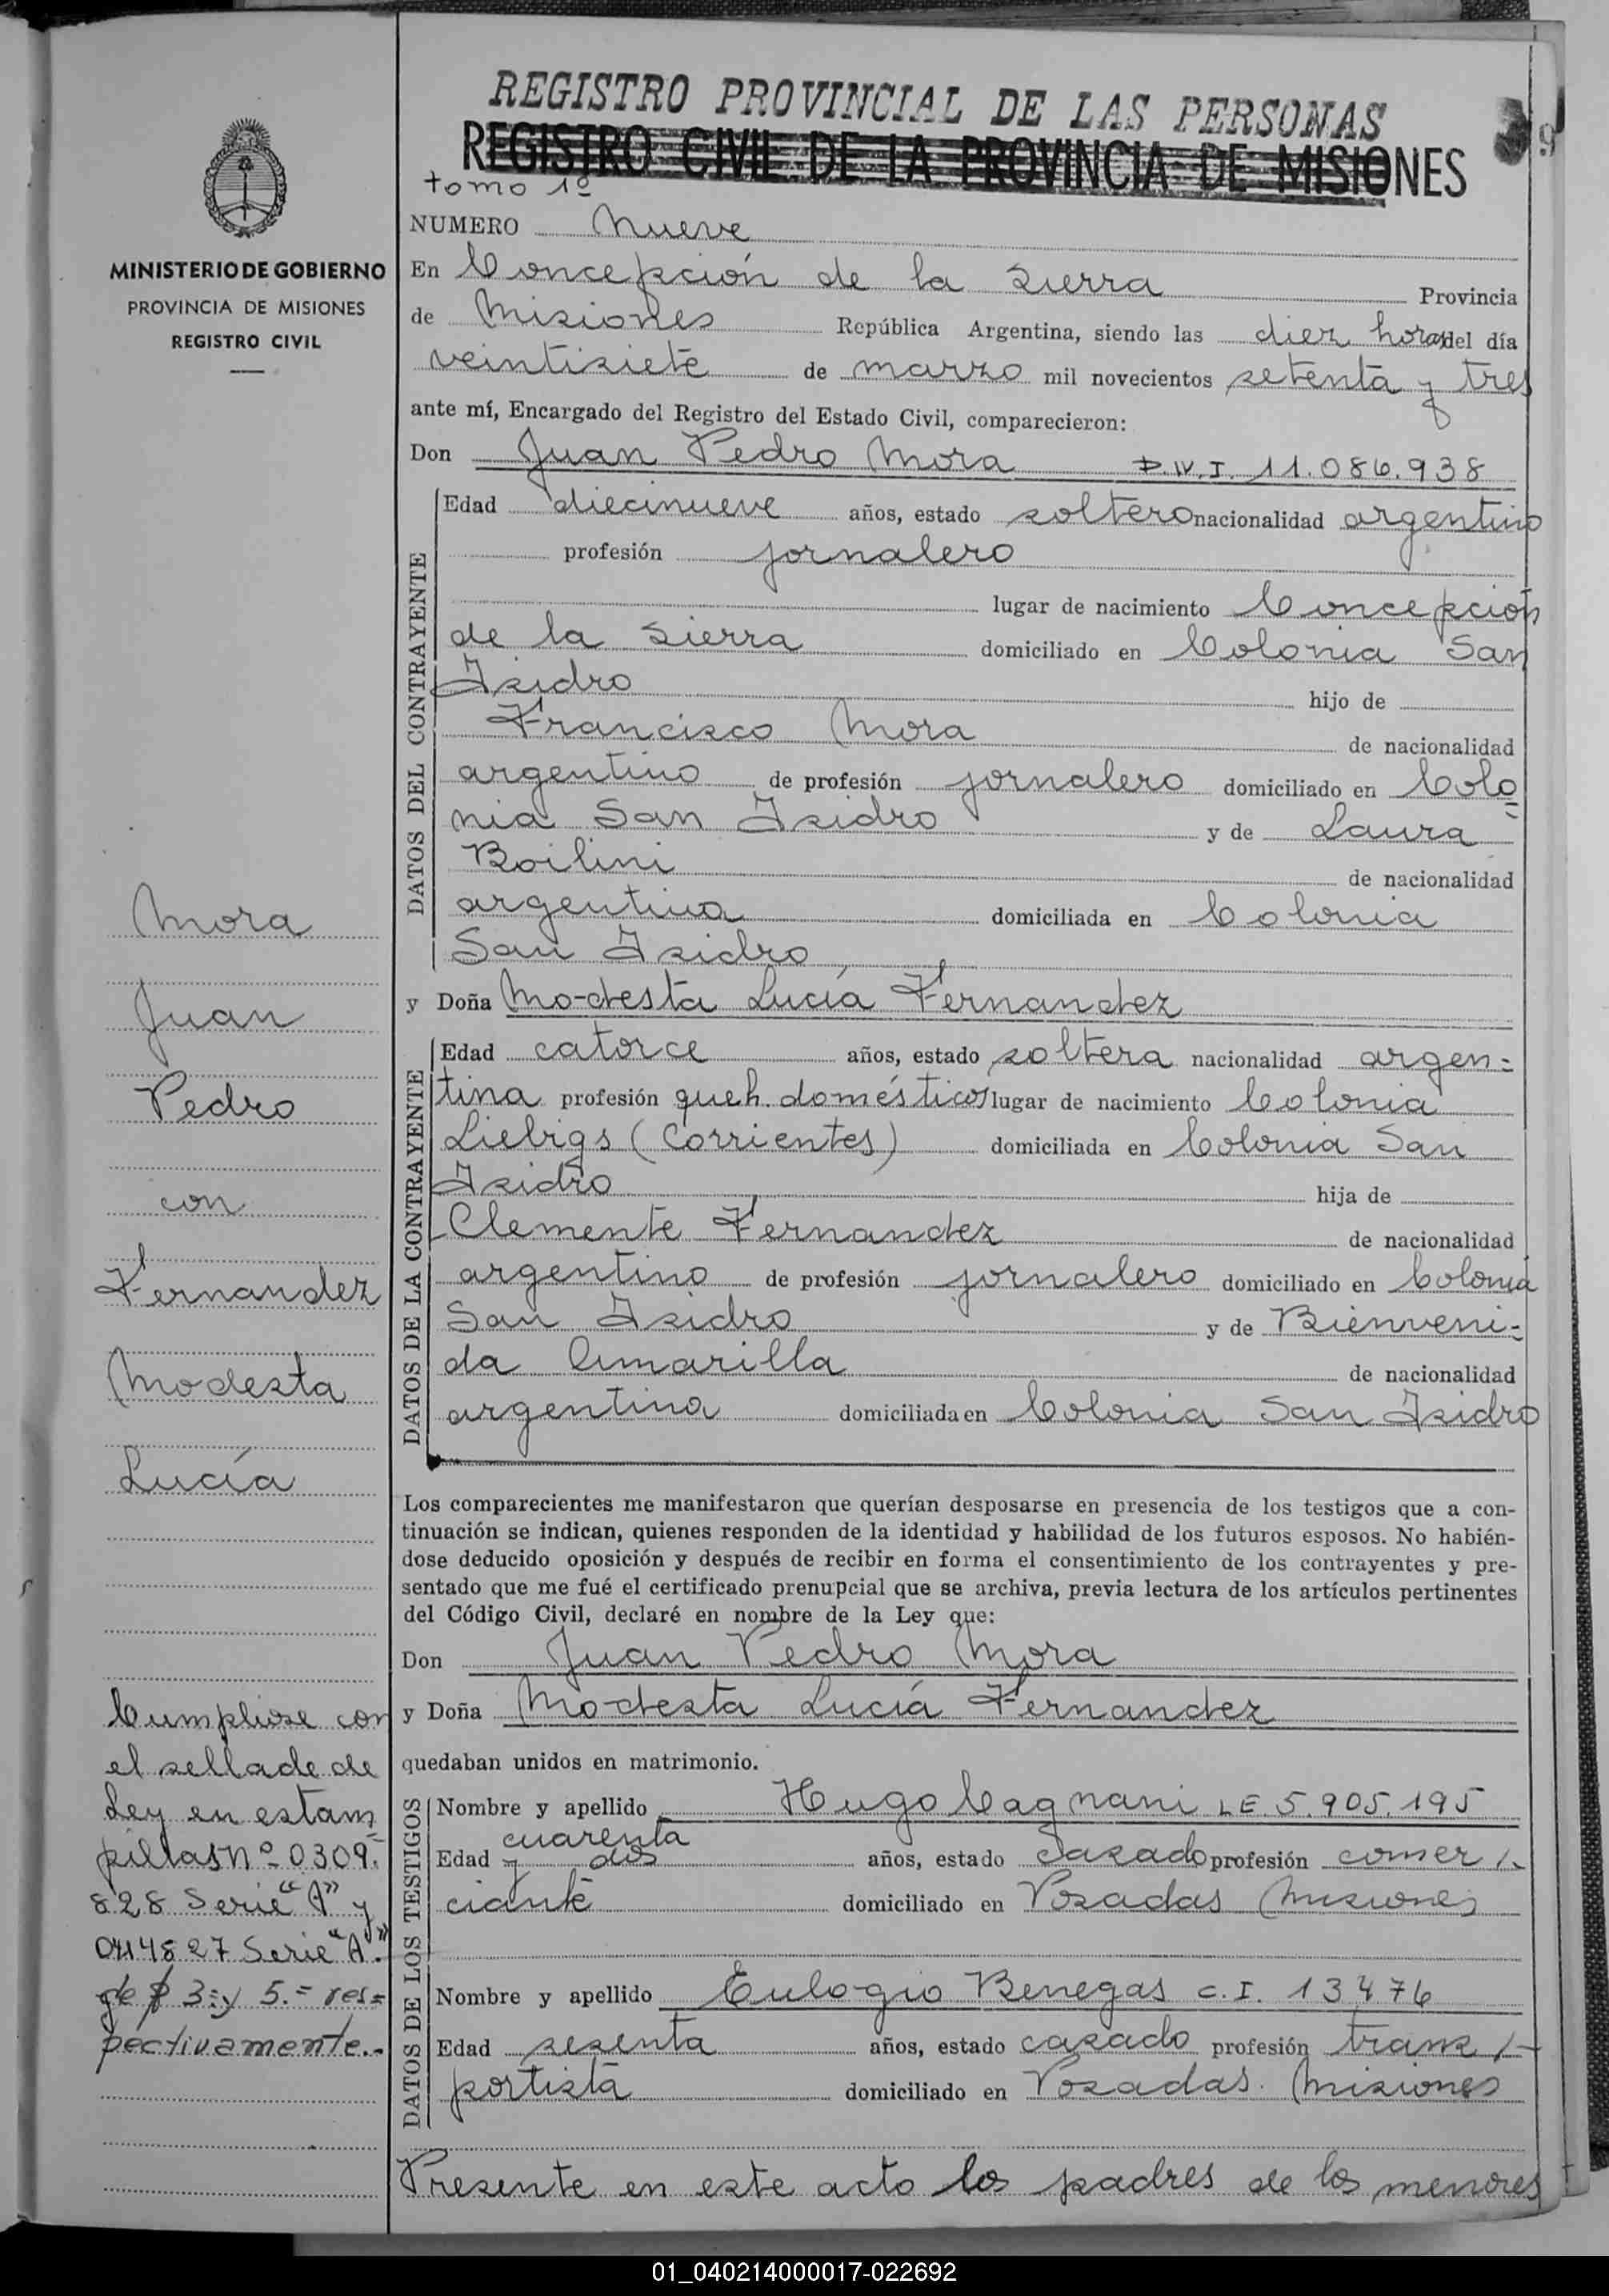 REGISTRO PROVINCIAL DE LAS PERSONAS
REGISTRO CIVIL DE LA PROVINCIA DE MISIONES
9
tomo 1º
NUMERO Nueve
En Concepción de la Sierra Provincia
de Misiones República Argentina, siendo las diez horas del día
veintisiete de marzo mil novecientos setenta y tres
ante mí, Encargado del Registro del Estado Civil, comparecieron:
Don Juan Pedro Mora D.N.I. 11.086.938
DATOS DEL CONTRAYENTE
Edad diecinueve años, estado soltero nacionalidad argentino
profesión jornalero
lugar de nacimiento Concepción
de la Sierra domiciliado en Colonia San
Isidro hijo de
Francisco Mora de nacionalidad
argentino de profesión jornalero domiciliado en Colo-
nia San Isidro y de Laura
Boilini de nacionalidad
argentina domiciliada en Colonia
San Isidro
y Doña Modesta Lucía Fernandez
DATOS DE LA CONTRAYENTE
Edad catorce años, estado soltera nacionalidad argen=
tina profesión queh. domésticos lugar de nacimiento Colonia
Liebigs (Corrientes) domiciliada en Colonia San
Isidro hija de
Clemente Fernandez de nacionalidad
argentino de profesión jornalero domiciliado en Colonia
San Isidro y de Bienveni=
da Amarilla de nacionalidad
argentina domiciliada en Colonia San Isidro
Los comparecientes me manifestaron que querían desposarse en presencia de los testigos que a con-
tinuación se indican, quienes responden de la identidad y habilidad de los futuros esposos. No habién-
dose deducido oposición y después de recibir en forma el consentimiento de los contrayentes y pre-
sentado que me fué el certificado prenupcial que se archiva, previa lectura de los artículos pertinentes
del Código Civil, declaré en nombre de la Ley que:
Don Juan Pedro Mora
y Doña Modesta Lucía Fernandez
quedaban unidos en matrimonio.
DATOS DE LOS TESTIGOS
Nombre y apellido Hugo Cagnani LE 5.905.195
Edad cuarenta y dos años, estado Casado profesión comer/-
ciante domiciliado en Posadas Misiones
Nombre y apellido Eulogio Benegas C.I. 13476
Edad sesenta años, estado casado profesión trans/-
portista domiciliado en Posadas. Misiones
Presente en este acto los padres de los menores
MINISTERIO DE GOBIERNO
PROVINCIA DE MISIONES
REGISTRO CIVIL
Mora
Juan
Pedro
con
Fernandez
Modesta
Lucía
Cumpliose con
el sellado de
Ley en estam
pillas Nº 0309.
828 Serie "A" y
0414827 Serie "A".
de $ 3.= y 5.= res=
pectivamente.-
01_040214000017-022692